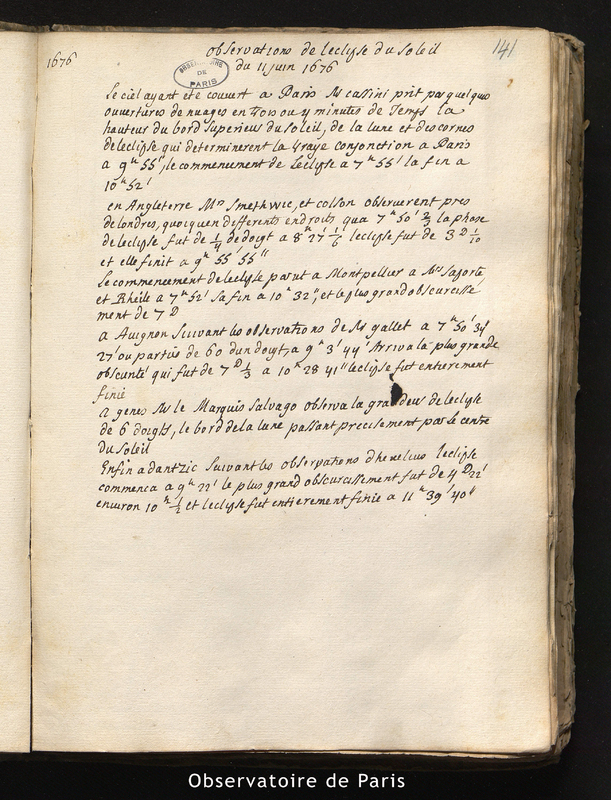 1676
observations de leclipse du soleil
du 11 juin 1676
141
OBSERVATOIRE
DE
PARIS
Le ciel ayant eté couvert a Paris Mr cassini prit par quelques
ouvertures de nuages en minutes de Temps la
hauteur du bord superieur du soleil, de la lune et des cornes
de leclipse qui determinerent la vraye conjonction a Paris
a 9h 55', le commencement de Leclipse a 7h 55' la fin a
10h 52'
en Angleterre Mrs Smethwic, et colson observerent pres
de londres, quoiquen differents endroits qua 7h 50' 2/3 la phase
de leclipse fut de 1/4 de doigt a 8h 27' 1/6 leclipse fut de 3D 1/10
et elle finit a 9h 55' 55"
Le commencement de leclipse parut a Montpellier a Mrs Laporte
et Rheile a 7h 52' sa fin a 10h 32", et le plus grand obscurcisse
ment de 7D
a Avignon suivant les observations de Mr gallet a 7h 50' 34
27' ou parties de 60 dun doigt, a 9h 3' 44' Arriva la plus grande
obscurité qui fut de 7D 1/3 a 10h 28 41" leclipse fut entierement
finie
a genes Mr le Marquis Salvago observa la grandeur de leclipse
de 6 doigts, le bord de la lune passant precisement par le centre
du soleil
Enfin a dantzic suivant les observations dhevelius leclipse
commenca a 9h 22' le plus grand obscurcissement fut de 4D 22'
environ 10h 1/2 et leclipse fut entierement finie a 11h 39' 40"
Observatoire de Paris